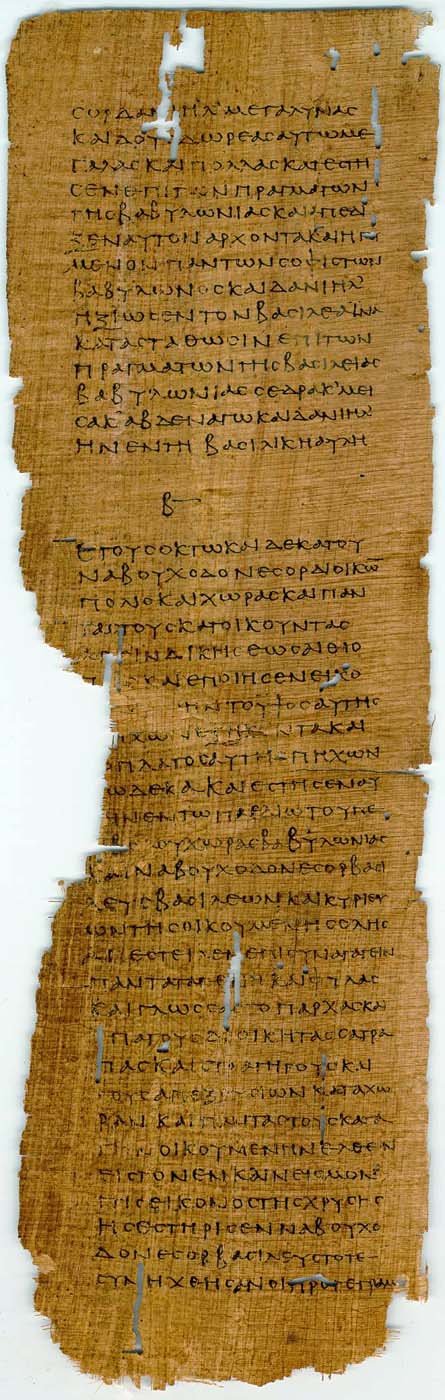 ϹΟΡΔΑΝΙΗΛ'ΜΕΓΑΛΥΝΑϹ
ΚΑΙΔΟΥϹΔΩΡΕΑϹΑΥΤΩΜΕ
ΓΑΛΑϹΚΑΙΠΟΛΛΑϹΚΑΤΕϹΤΗ
ϹΕΝΕΠΙΤΩΝΠΡΑΓΜΑΤΩΝ
ΤΗϹΒΑΒΥΛΩΝΙΑϹΚΑΙΑΠΕΔΙ
ΞΕΝΑΥΤΟΝΑΡΧΟΝΤΑΚΑΙΗΓΟΥ
ΜΕΝΟΝΠΑΝΤΩΝϹΟΦΙϹΤΩΝ
ΒΑΒΥΛΩΝΟϹΚΑΙΔΑΝΙΗΛ'
ΗΞΙΩϹΕΝΤΟΝΒΑϹΙΛΕΑΙΝΑ
ΚΑΤΑϹΤΑΘΩϹΙΝΕΠΙΤΩΝ
ΠΡΑΓΜΑΤΩΝΤΗϹΒΑϹΙΛΕΙΑϹ
ΒΑΒΥΛΩΝΙΑϹϹΕΔΡΑΚ'ΜΕΙ
ϹΑΚ'ΑΒΔΕΝΑΓΩΚΑΙΔΑΝΙΗΛ'
ΗΝΕΝΤΗΒΑϹΙΛΙΚΗΑΥΛΗ
Β
ΕΤΟΥϹΟΚΤΩΚΑΙΔΕΚΑΤΟΥ
ΝΑΒΟΥΧΟΔΟΝΕϹΟΡΔΙΟΙΚΩ̅
ΠΟΛΙϹΚΑΙΧΩΡΑϹΚΑΙΠΑΝ
ΤΑϹΤΟΥϹΚΑΤΟΙΚΟΥΝΤΑϹ
ΙΝΔΙΚΗϹΕΩϹΑΙΘΙΟ
ΕΠΟΙΗϹΕΝΕΙΚΟ
ΗΝΤΟΥΨΟϹΑΥΤΗϹ
ΝΤΑΚΑΙ
ΠΛΑΤΟϹΑΥΤΗϹΠΗΧΩΝ
ΩΔΕΚΑΚΑΙΕΣΤΗϹΕΝΑΥ
ΗΝΕΝΤΩΠΕΔΙΩΤΟΥΠΕ
ΟΥΧΩΡΑϹΒΑΒΥΛΩΝΙΑϹ
ΚΑΙΝΑΒΟΥΧΟΔΟΝΕϹΟΡΒΑϹΙ
ΛΕΥϹΒΑϹΙΛΕΩΝΚΑΙΚΥΡΙΕΥ
ΩΝΤΗϹΟΙΚΟΥΜΕΝΗϹΟΛΗϹ
ΑΠΕϹΤΕΙΛΕΝΕΠΙϹΥΝΑΓΑΓΕΙΝ
ΠΑΝΤΑΤΑΕΘΝΗΚΑΙΦΥΛΑϹ
ΚΑΙΓΛΩϹϹΑϹΤΟΠΑΡΧΑϹΚΑΙ
ΥΠΑΤΟΥϹΔΙΟΙΚΗΤΑϹϹΑΤΡΑ
ΠΑϹΚΑΙϹΤΡΑΤΗΓΟΥϹΚΑΙ
ΤΟΥϹΕΠΕΞΟΥϹΙΩΝΚΑΤΑΧΩ
ΡΑΝΚΑΙΠΑΝΤΑϹΤΟΥϹΚΑΤΑ
ΤΗΝΟΙΚΟΥΜΕΝΗΝΕΛΘΕΙΝ
ΕΙϹΤΟΝΕΝΚΑΙΝΕΙϹΜΟΝ
ΤΗϹΕΙΚΟΝΟϹΤΗϹΧΡΥϹΗϹ
ΗϹΕϹΤΗΡΙϹΕΝΝΑΒΟΥΧΟ
ΔΟΝΕϹΟΡΒΑϹΙΛΕΥϹΤΟΤΕ
ϹΥΝΗΧΘΗϹΑΝΟΙ